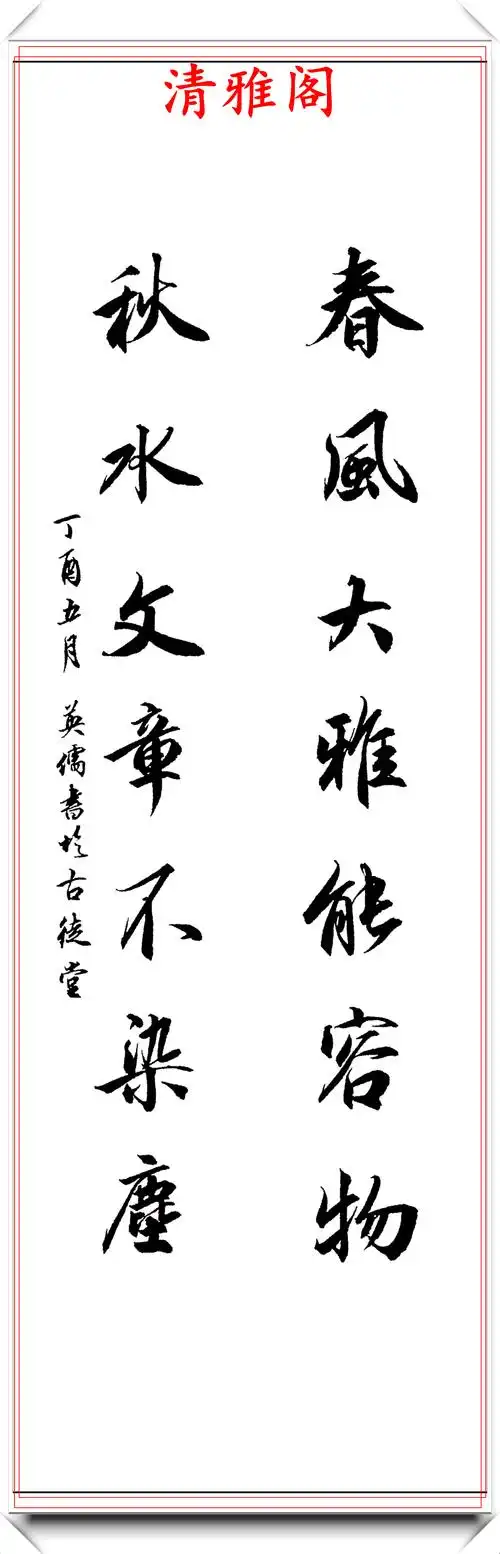 清雅阁
春風大雅能容物
秋水文章不染塵
丁酉五月 英儒書於古德堂